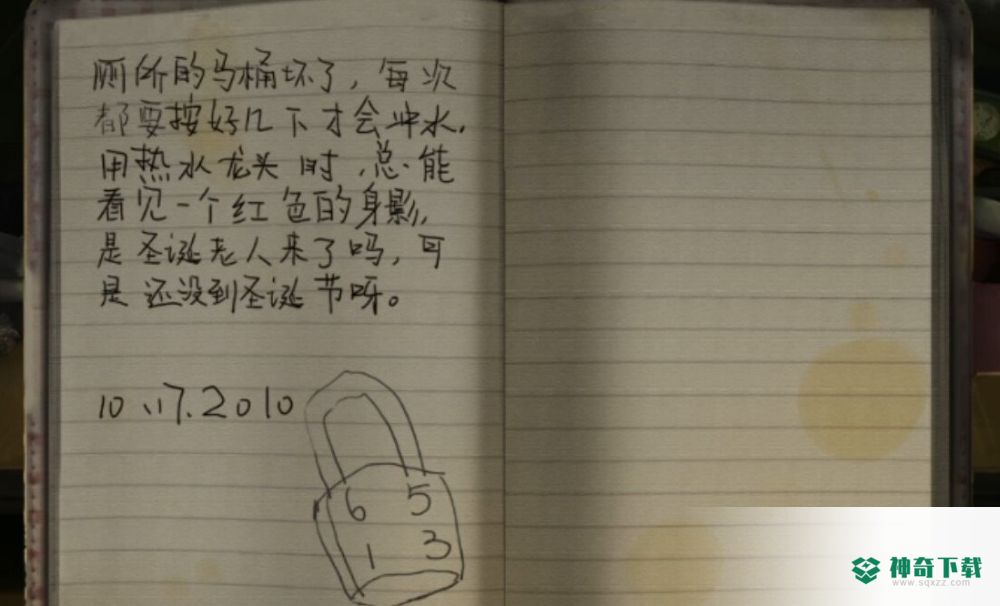 厕所的马桶坏了，每次
都要按好几下才会冲水.
用热水龙头时，总能
看见一个红色的身影，
是圣诞老人来了吗，可
是还没到圣诞节呀。
10.17.2010
6 5
1 3
神奇下载
www.sqxzz.com